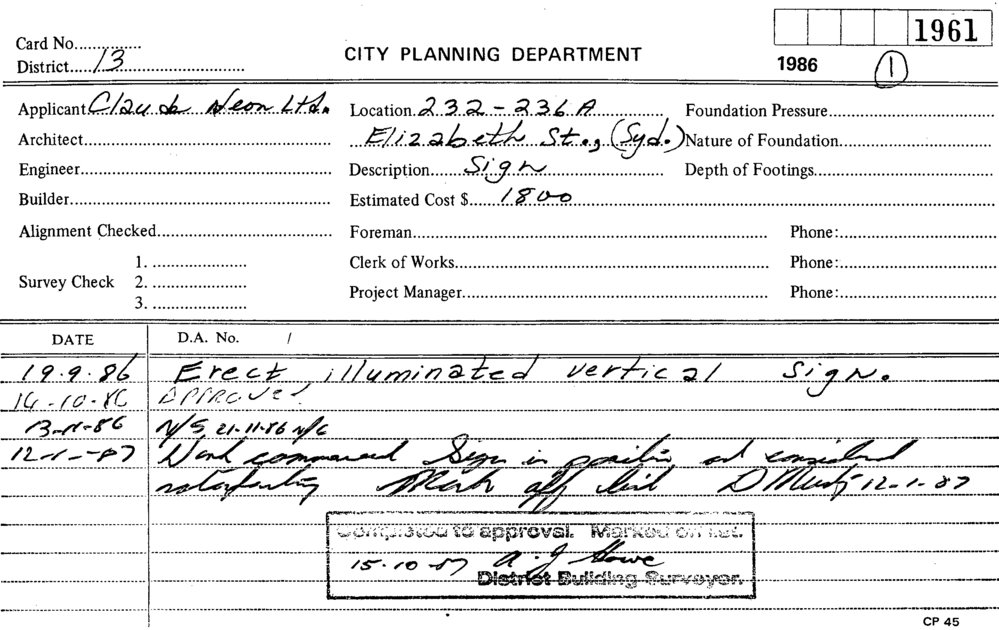 1961
Card No.
District 13
CITY PLANNING DEPARTMENT
1986 1
Applicant Claude Neon Ltd. Location 232-236A Foundation Pressure
Architect Elizabeth St., (Syd.) Nature of Foundation
Engineer Description Sign Depth of Footings
Builder Estimated Cost $ 1800
Alignment Checked Foreman Phone:
1. Clerk of Works Phone:
Survey Check 2.
Project Manager Phone:
3.
DATE D.A. No. /
19.9.86 Erect illuminated vertical sign.
14-10-86 APPROVED
13-11-86 N/S 21-11-86 N/C
12-1-87 Work commenced Sign in position and considered
satisfactory Mark off list D 12-1-87
Completed to approval. Marked on List.
15-10-87 A. J Howe
District Building Surveyor.
CP 45